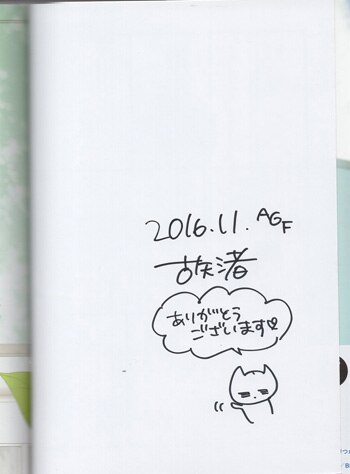 2016.11. AGF
古矢渚
ありがとう
ございます♡